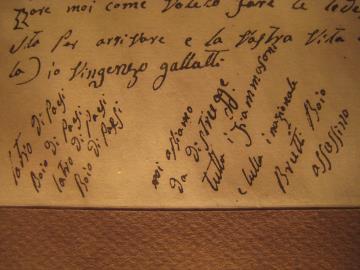 zare moi come volevo fare le lode
sta per arrivare e la vostra vita
la) io vingenzo gallatti
latrio di Paesi
Boio di Paesi
latrio di Paesi
Boio di Paesi
noi assiamo
da distrugge
tutta i
e tutta i nazionale
Bruti Boio
assassino